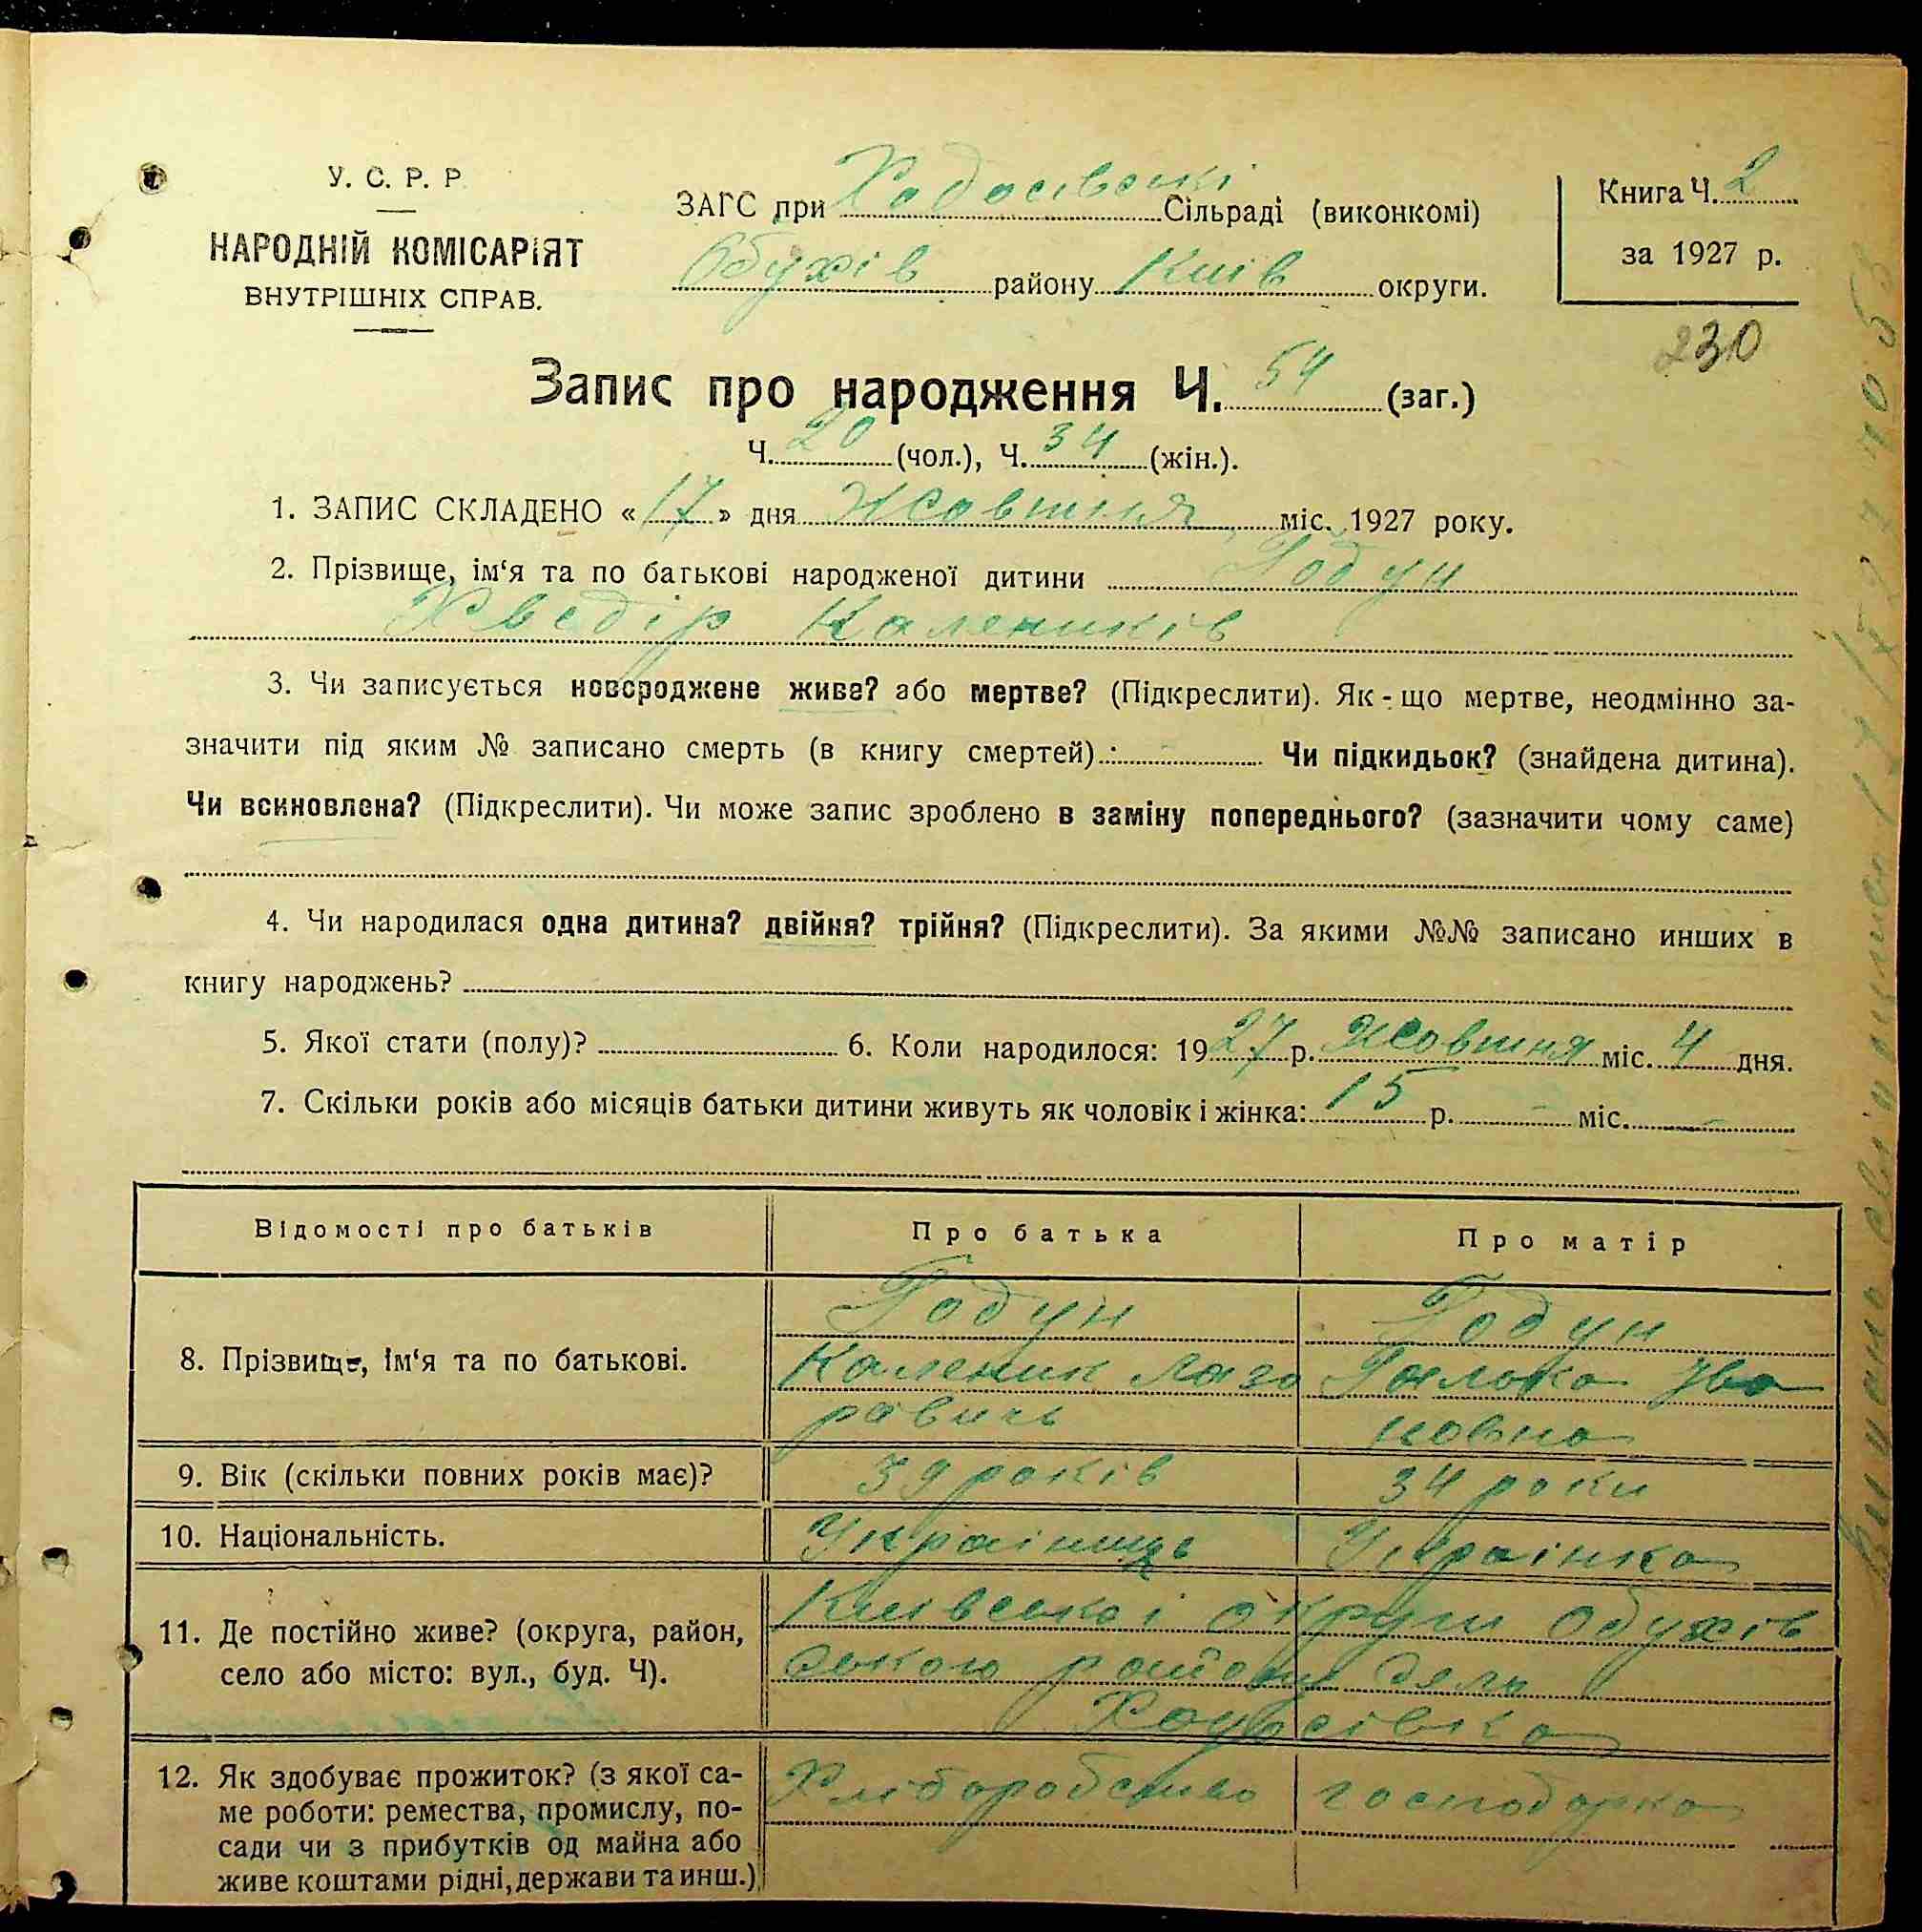 У. С. Р. Р.
НАРОДНІЙ КОМІСАРІЯТ
ВНУТРІШНІХ СПРАВ.
ЗАГС при Ходосівські Сільраді (виконкомі)
Обухів району Київ округи.
Книга Ч. 2
за 1927 р.
230
Запис про народження Ч. 54 (заг.)
Ч. 20 (чол.), Ч. 34 (жін.).
1. ЗАПИС СКЛАДЕНО «17» дня Жовтня міс. 1927 року.
2. Прізвище, ім‘я та по батькові народженої дитини Годун
Хведір Калеників
3. Чи записується новороджене живе? або мертве? (Підкреслити). Як-що мертве, неодмінно за-
значити під яким № записано смерть (в книгу смертей): Чи підкидьок? (знайдена дитина).
Чи всиновлена? (Підкреслити). Чи може запис зроблено в заміну попереднього? (зазначити чому саме)
4. Чи народилася одна дитина? двійня? трійня? (Підкреслити). За якими №№ записано инших в
книгу народжень?
5. Якої стати (полу)? 6. Коли народилося: 1927 р. Жовтня міс. 4 дня.
7. Скільки років або місяців батьки дитини живуть як чоловік і жінка: 15 р. – міс. –
Відомості про батьків Про батька Про матір
8. Прізвище, ім‘я та по батькові.
Годун
Каленик Лаза
ровичь
Годун
Ива
новна
9. Вік (скільки повних років має)? 39 років 34 роки
10. Національність. Українець Українка
11. Де постійно живе? (округа, район,
село або місто: вул., буд. Ч).
Київської округи Обухів
ського району село
Ходосівка
12. Як здобуває прожиток? (з якої са-
ме роботи: ремества, промислу, по-
сади чи з прибутків од майна або
живе коштами рідні, держави та инш.)
Хліборобство господарка